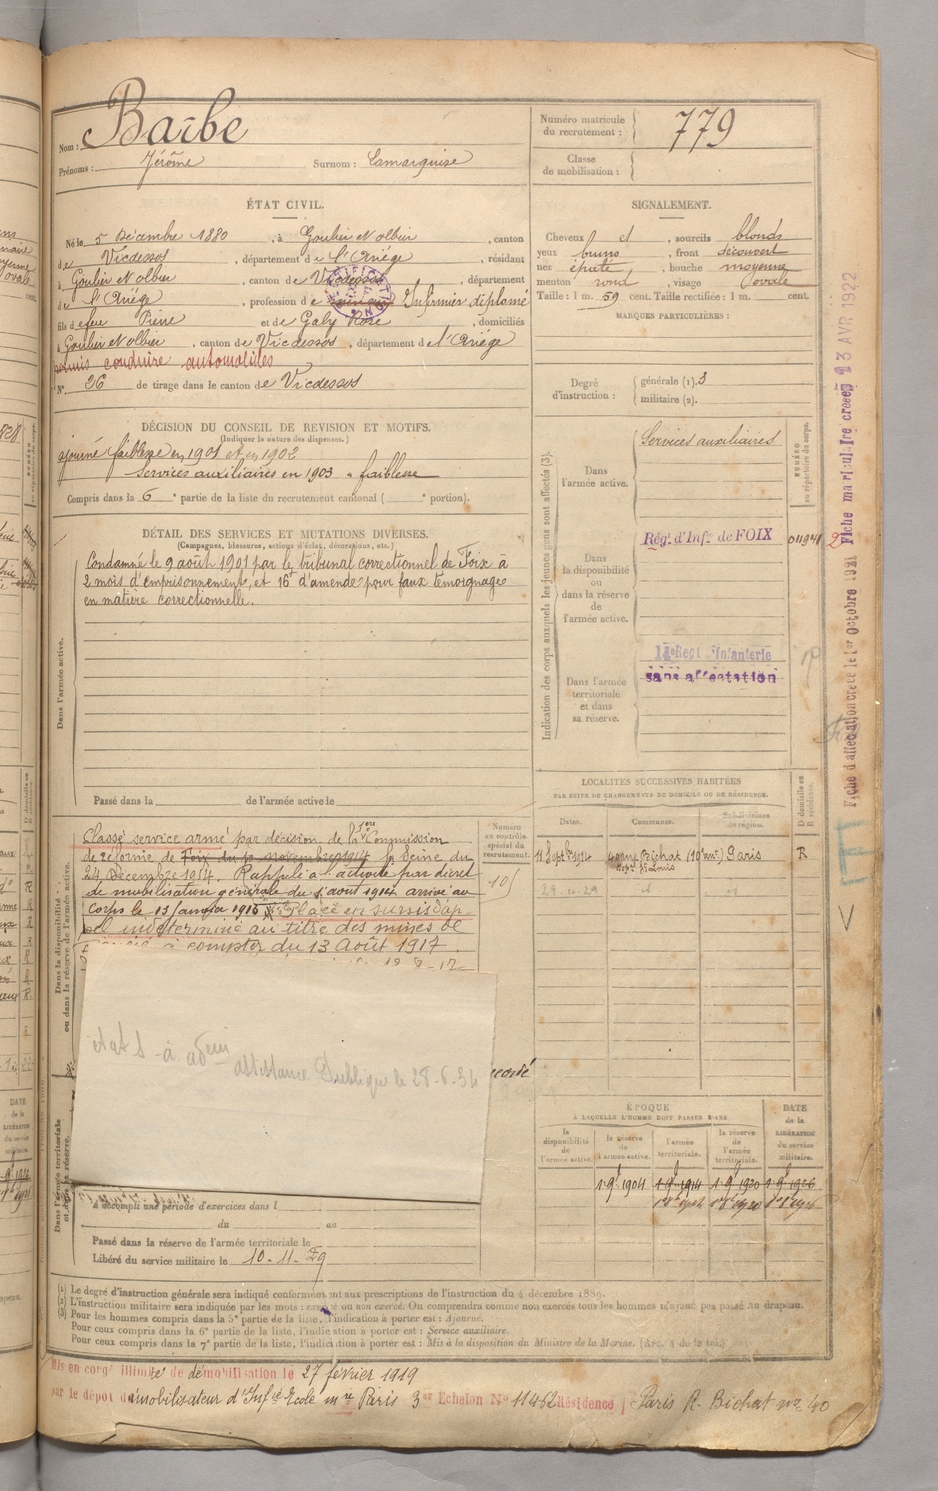 Nom : Barbe
Prénoms : Jérôme Surnom : Lamarquise
Numéro matricule du recrutement : 779
Classe de mobilisation :
ÉTAT CIVIL.
Né le 5 Décembre 1880, à Goulier et Olbier, canton
de Vicdessos, département de l'Ariège, résidant
à Goulier et Olbier, canton de Vicdessos, département
de l'Ariège, profession de Infirmier diplomé
fils de feu Pierre et de Galy Rose, domiciliés
à Goulier et Olbier, canton de Vicdessos, département de l'Ariège
conduire automobiles
N° 26 de tirage dans le canton de Vicdessos
SIGNALEMENT.
Cheveux et, sourcils blonds
yeux bruns, front découvert
nez épaté, bouche moyenne
menton rond, visage ovale
Taille : 1 m. 59 cent. Taille rectifiée : 1 m. cent.
MARQUES PARTICULIÈRES :
Degré d'instruction : générale (1). 3
militaire (2).
DÉCISION DU CONSEIL DE REVISION ET MOTIFS.
(Indiquer la nature des dispenses.)
ajourné faiblesse en 1901 et en 1902
Services auxiliaires en 1903 faiblesse
Compris dans la 6e partie de la liste du recrutement cantonal ( e portion).
DÉTAIL DES SERVICES ET MUTATIONS DIVERSES.
(Campagnes, blessures, actions d'éclat, décorations, etc.)
Dans l'armée active.
Condamné le 9 août 1901 par le tribunal correctionnel de Foix à
2 mois d'emprisonnement, et 16f d'amende pour faux témoignage
en matière correctionnelle.
Passé dans la de l'armée active le
Indication des corps auxquels les jeunes gens sont affectés (3).
NUMÉRO au répertoire du corps.
Dans l'armée active.
Services auxiliaires
Dans la disponibilité ou dans la réserve de l'armée active.
Rég. d'Infie de FOIX
Dans l'armée territoriale et dans sa réserve.
Infanterie
sans affectation
Fiche matriculaire créée 13 AVR 1922
Fiche d'affectation créée le 1er Octobre 1921
Dans la disponibilité ou dans la réserve de l'armée active.
Classé service armé par décision de la 1ère Commission
de réforme de Foix du 10 novembre 1914 la Seine du
24 Décembre 1914. Rappelé à l'activité par décret
de mobilisation générale du 1 août 1914 arrivé au
Corps le 13 Placé en sursis d'ap-
pel indéterminé au titre des mines de
à compter du 13 Août 1917.
Numéro au contrôle spécial du recrutement.
LOCALITÉS SUCCESSIVES HABITÉES
PAR SUITE DE CHANGEMENTS DE DOMICILE OU DE RÉSIDENCE.
Dates. Communes. Subdivisions de région. D domicile ou R résidence.
11 Septbre 1914 40 rue Bichat (10e arr.) Paris R
hôp. St Louis
Etat S - à adm
assistance Publique le 28-6-34
ÉPOQUE
À LAQUELLE L'HOMME DOIT PASSER DANS
la disponibilité de l'armée active.
la réserve de l'armée active.
l'armée territoriale.
la réserve de l'armée territoriale.
DATE de la LIBÉRATION du service militaire.
1 9bre 1904 1 9bre 1914 1 9bre 1920 1 9bre 1926
Dans l'armée territoriale et dans sa réserve.
A accompli une période d'exercices dans l
du au
Passé dans la réserve de l'armée territoriale le
Libéré du service militaire le 10-11-29
(1) Le degré d'instruction générale sera indiqué conformément aux prescriptions de l'instruction du 4 décembre 1889.
(2) L'instruction militaire sera indiquée par les mots : exercé ou non exercé. On comprendra comme non exercés tous les hommes n'ayant pas passé au drapeau.
(3) Pour les hommes compris dans la 5e partie de la liste, l'indication à porter est : Ajourné.
Pour ceux compris dans la 6e partie de la liste, l'indication à porter est : Service auxiliaire.
Pour ceux compris dans la 7e partie de la liste, l'indication à porter est : Mis à la disposition du Ministre de la Marine. (Art. 4 de la loi.)
Mis en congé illimité de démobilisation le 27 février 1919
par le dépôt démobilisateur d'Infie Ecole mre Paris 3er Echelon N° 11452 Résidence Paris R. Bichat no 40